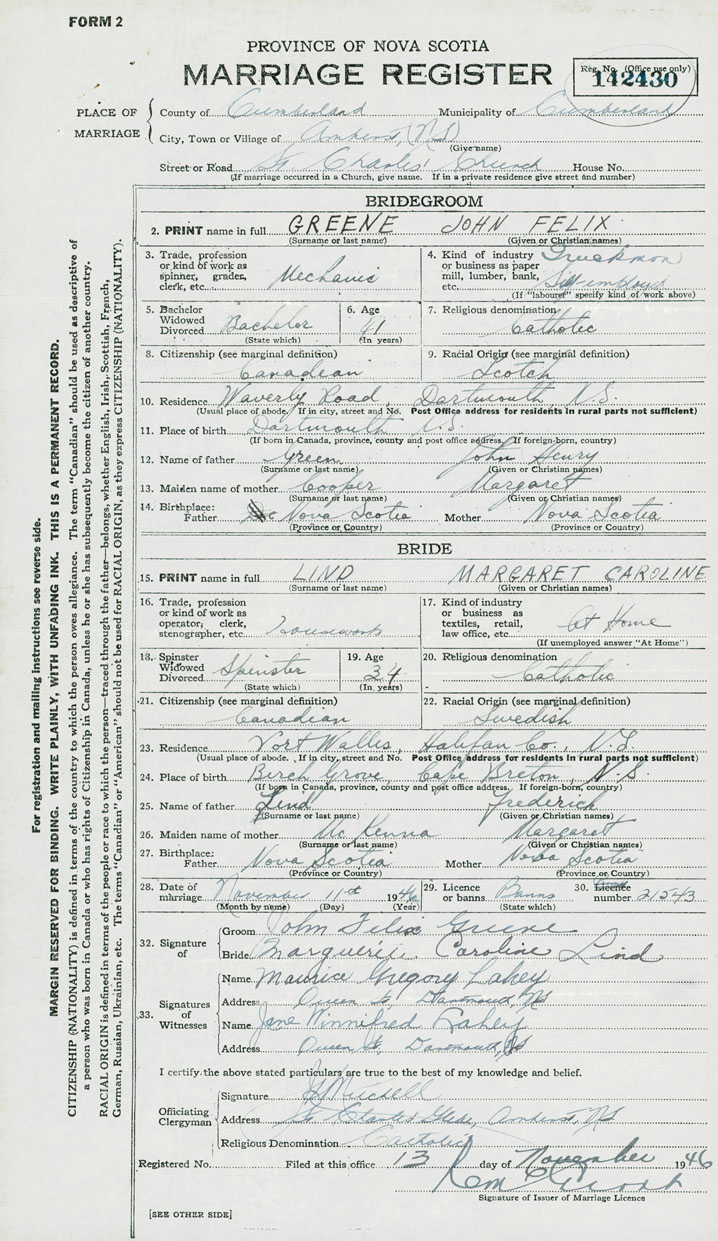 FORM 2
PROVINCE OF NOVA SCOTIA
MARRIAGE REGISTER
Reg. No. (Office use only)
142430
PLACE OF MARRIAGE
County of Cumberland Municipality of Cumberland
City, Town or Village of Amherst, (NS)
(Give name)
Street or Road St Charles' Church House No.
(If marriage occurred in a Church, give name. If in a private residence give street and number)
BRIDEGROOM
2. PRINT name in full GREENE JOHN FELIX
(Surname or last name) (Given or Christian names)
3. Trade, profession or kind of work as spinner, grader, clerk, etc. Mechanic
4. Kind of industry or business as paper mill, lumber, bank, etc. Truckman
(If "labourer" specify kind of work above)
5. Bachelor Widowed Divorced Bachelor
(State which)
6. Age 41
(In years)
7. Religious denomination Catholic
8. Citizenship (see marginal definition) Canadian
9. Racial Origin (see marginal definition) Scotch
10. Residence Waverly Road, Dartmouth, N.S.
(Usual place of abode. If in city, street and No. Post Office address for residents in rural parts not sufficient)
11. Place of birth Dartmouth N.S.
(If born in Canada, province, county and post office address. If foreign-born, country)
12. Name of father Green John Henry
(Surname or last name) (Given or Christian names)
13. Maiden name of mother Cooper Margaret
(Surname or last name) (Given or Christian names)
14. Birthplace: Father Nova Scotia Mother Nova Scotia
(Province or Country) (Province or Country)
BRIDE
15. PRINT name in full LIND MARGARET CAROLINE
(Surname or last name) (Given or Christian names)
16. Trade, profession or kind of work as operator, clerk, stenographer, etc. Housework
17. Kind of industry or business as textiles, retail, law office, etc. At Home
(If unemployed answer "At Home")
18. Spinster Widowed Divorced Spinster
(State which)
19. Age 34
(In years)
20. Religious denomination Catholic
21. Citizenship (see marginal definition) Canadian
22. Racial Origin (see marginal definition) Swedish
23. Residence Port Wallis, Halifax Co., N.S.
(Usual place of abode. If in city, street and No. Post Office address for residents in rural parts not sufficient)
24. Place of birth Birch Grove, Cape Breton, N.S.
(If born in Canada, province, county and post office address. If foreign-born, country)
25. Name of father Lind Frederick
(Surname or last name) (Given or Christian names)
26. Maiden name of mother McKenna Margaret
(Surname or last name) (Given or Christian names)
27. Birthplace: Father Nova Scotia Mother Nova Scotia
(Province or Country) (Province or Country)
28. Date of marriage November 11th 1946
(Month by name) (Day) (Year)
29. Licence or banns Banns
(State which)
30. Licence number 21243
32. Signature of
Groom John Felix Greene
Bride Marguerite Caroline Lind
33. Signatures of Witnesses
Name Maurice Gregory Lahey
Address Queen St. Dartmouth, NS
Name Jane Winnifred Lahey
Address Queen St. Dartmouth, NS
I certify the above stated particulars are true to the best of my knowledge and belief.
Officiating Clergyman
Signature
Address St Charles Glebe, Amherst, NS
Religious Denomination Catholic
Registered No. Filed at this office 13 day of November 1946
Signature of Issuer of Marriage Licence
[SEE OTHER SIDE]
For registration and mailing instructions see reverse side.
MARGIN RESERVED FOR BINDING. WRITE PLAINLY, WITH UNFADING INK. THIS IS A PERMANENT RECORD.
CITIZENSHIP (NATIONALITY) is defined in terms of the country to which the person owes allegiance. The term "Canadian" should be used as descriptive of
a person who was born in Canada or who has rights of Citizenship in Canada, unless he or she has subsequently become the citizen of another country.
RACIAL ORIGIN is defined in terms of the people or race to which the person—traced through the father—belongs, whether English, Irish, Scottish, French,
German, Russian, Ukrainian, etc. The terms "Canadian" or "American" should not be used for RACIAL ORIGIN, as they express CITIZENSHIP (NATIONALITY).